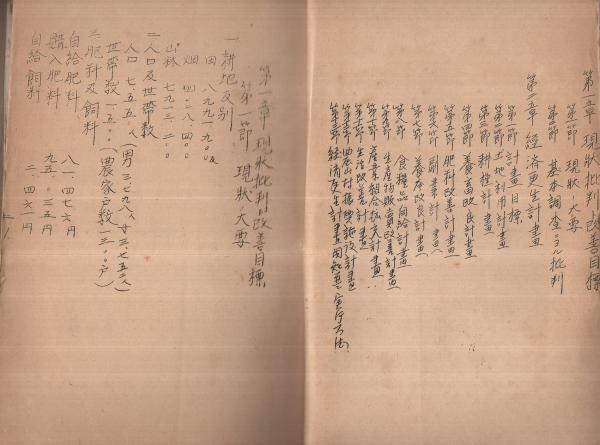 第一章 現状批判ト改善目標
第一節 現状ノ大要
第二節 基本調査ニヨル批判
第二章 経済更生計画
第一節 計画目標
第二節 土地利用計画
第三節 耕種計画
第四節 養畜改良計画
第五節 肥料改善計画
第六節 副業計画
第七節 養蚕改良計画
第八節 食糧品自給計画
第九節 生産物販売改善計画
第十節 産業組合拡充計画
第十一節 生活改善計画
第十二節 農山村振興施設計画
第十三節 経済更生計画
第一章 現状批判ト改善目標
第一節 現状ノ大要
一 耕地反別
田 八九九一九
畑 四二八、四
山林 七九三
二 人口及世帯数
人口 七、五五人(男三、七九八人 女三、七五二人)
世帯数 一、五 (農家戸数一三 戸)
三 肥料及飼料
自給肥料 八一、四七六円
購入肥料 九五、三五円
自給飼料 二、四六一円